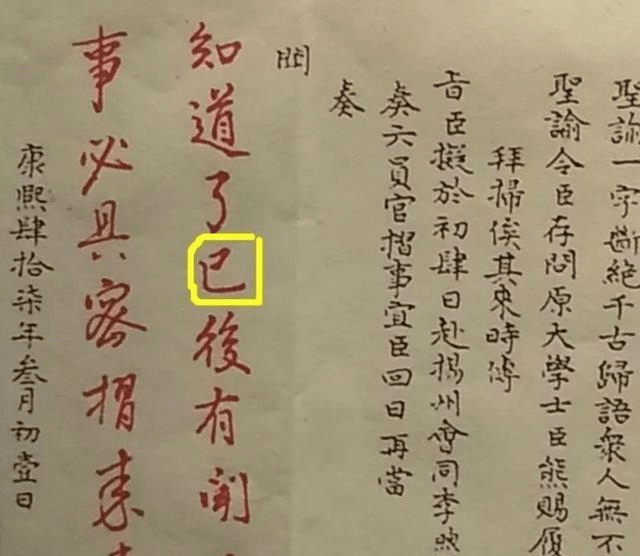 聖諭一字斷絕千古歸語衆人無不
聖諭令臣存問原大學士臣熊賜履
拜掃俟其來時傳
旨臣擬於初肆日赴揚州會同李煦
奏六員官摺事宜臣回日再當
奏
聞
知道了已後有聞
事必具密摺來
康熙肆拾柒年叁月初壹日